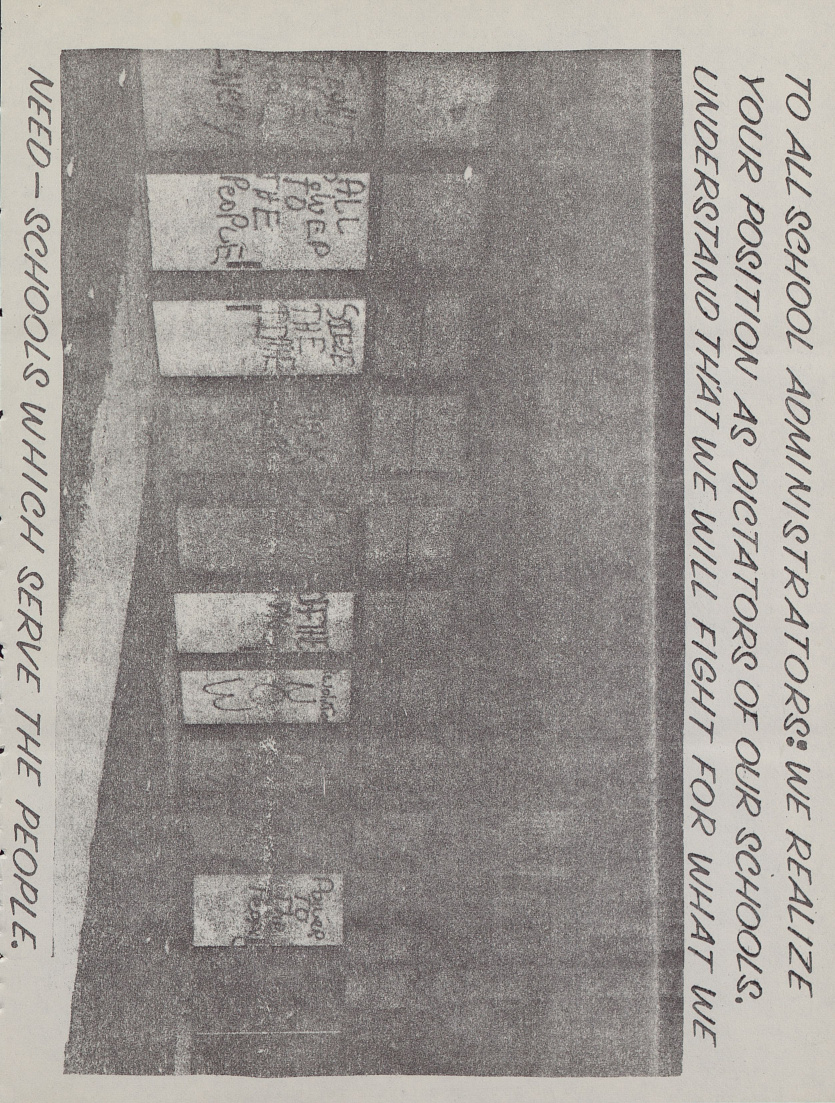 TO ALL SCHOOL ADMINISTRATORS: WE REALIZE
YOUR POSITION AS DICTATORS OF OUR SCHOOLS.
UNDERSTAND THAT WE WILL FIGHT FOR WHAT WE
THE
ENEMY
ALL
POWER
TO
THE
PEOPLE!
SIEZE
THE
TIME
OF THE
Power
TO
The
NEED — SCHOOLS WHICH SERVE THE PEOPLE.